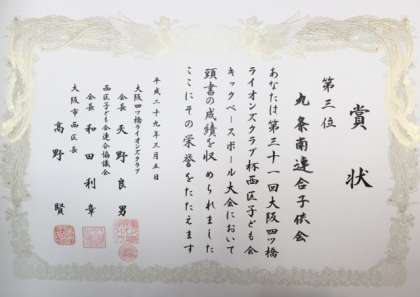 賞状
第三位
九条南連合子供会
あなたは第三十一回大阪四ツ橋
ライオンズクラブ杯西区子ども会
キックベースボール大会において
頭書の成績を収められました
ここにその栄誉をたたえます
平成二十九年三月五日
大阪四ツ橋ライオンズクラブ
会長 天野良男
西区子ども会連合協議会
会長 和田利章
大阪市西区長
高野賢